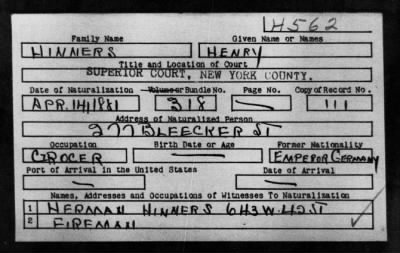 H562
Family Name Given Name or Names
HINNERS HENRY
Title and Location of Court
SUPERIOR COURT, NEW YORK COUNTY.
Date of Naturalization Volume or Bundle No. Page No. Copy of Record No.
APR. 14 1881 318 — 111
Address of Naturalized Person
277 BLEECKER ST
Occupation Birth Date or Age Former Nationality
GROCER — EMPEROR GERMANY
Port of Arrival in the United States Date of Arrival
— —
Names, Addresses and Occupations of Witnesses To Naturalization
1 HERMAN HINNERS 643 W. 42 ST
2 FIREMAN